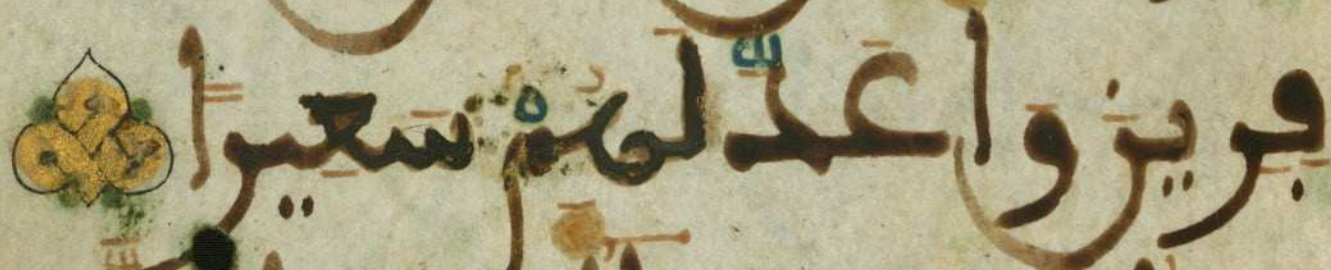 فِرِينَ وَأَعَدَّ لَهُمْ سَعِيرًا